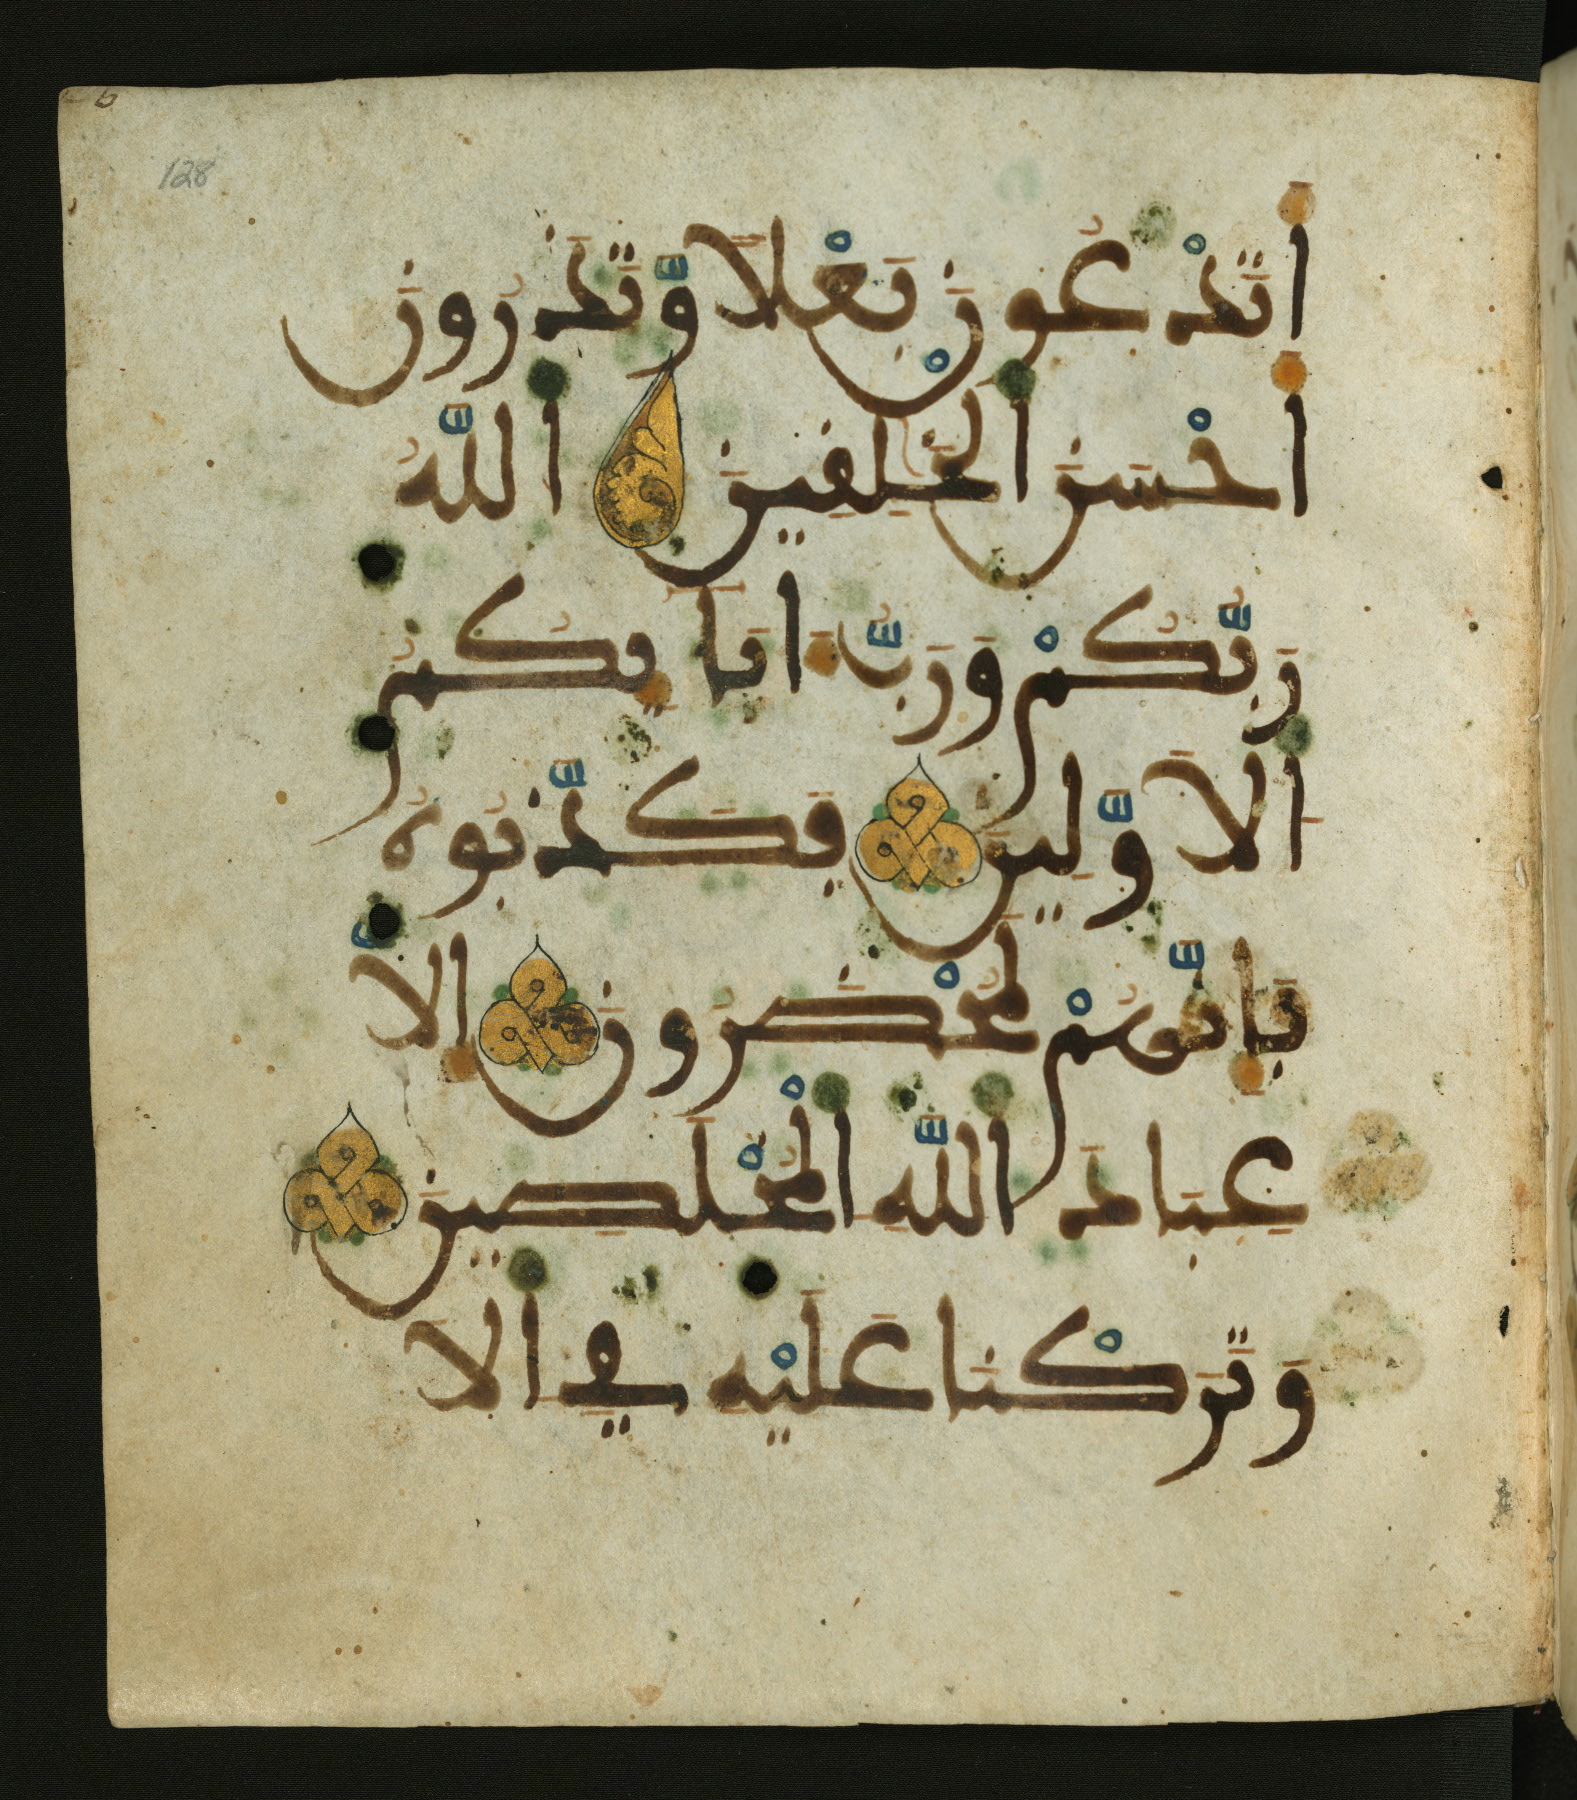 128
أَتَدْعُونَ بَعْلًا وَّتَذَرُونَ
أَحْسَنَ الْخَٰلِقِينَ اَللَّهُ
رَبُّكُمْ وَرَبُّ ءَابَآئِكُمُ
الْأَوَّلِينَ فَكَذَّبُوهُ
فَإِنَّهُمْ لَمُحْضَرُونَ إِلَّا
عِبَادَ اللَّهِ الْمُخْلَصِينَ
وَتَرَكْنَا عَلَيْهِ فِي الَا